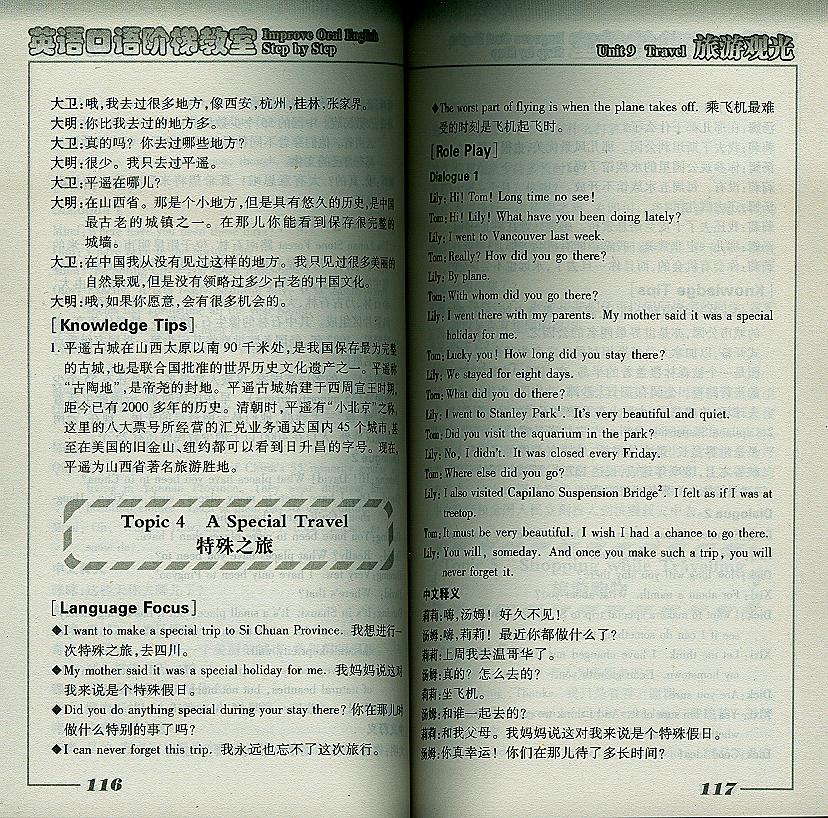 英语口语阶梯教室 Improve Oral English
Step by Step
大卫:哦,我去过很多地方,像西安,杭州,桂林,张家界。
大明:你比我去过的地方多。
大卫:真的吗?你去过哪些地方?
大明:很少。我只去过平遥。
大卫:平遥在哪儿?
大明:在山西省。那是个小地方,但是具有悠久的历史,是中国
最古老的城镇之一。在那儿你能看到保存很完整的
城墙。
大卫:在中国我从没有见过这样的地方。我只见过很多美丽的
自然景观,但是没有领略过多少古老的中国文化。
大明:哦,如果你愿意,会有很多机会的。
[Knowledge Tips]
1. 平遥古城在山西太原以南 90 千米处,是我国保存最为完整
的古城,也是联合国批准的世界历史文化遗产之一。平遥称
“古陶地”,是帝尧的封地。平遥古城始建于西周宣王时期,
距今已有 2000 多年的历史。清朝时,平遥有“小北京”之称,
这里的八大票号所经营的汇兑业务通达国内 45 个城市,甚
至在美国的旧金山、纽约都可以看到日升昌的字号。现在,
平遥为山西省著名旅游胜地。
Topic 4 A Special Travel
特殊之旅
[Language Focus]
◆I want to make a special trip to Si Chuan Province. 我想进行一
次特殊之旅,去四川。
◆My mother said it was a special holiday for me. 我妈妈说这对
我来说是个特殊假日。
◆Did you do anything special during your stay there? 你在那儿时
做什么特别的事了吗?
◆I can never forget this trip. 我永远也忘不了这次旅行。
116
Unit 9 Travel 旅游观光
◆The worst part of flying is when the plane takes off. 乘飞机最难
受的时刻是飞机起飞时。
[Role Play]
Dialogue 1
Lily: Hi! Tom! Long time no see!
Tom: Hi! Lily! What have you been doing lately?
Lily: I went to Vancouver last week.
Tom: Really? How did you go there?
Lily: By plane.
Tom: With whom did you go there?
Lily: I went there with my parents. My mother said it was a special
holiday for me.
Tom: Lucky you! How long did you stay there?
Lily: We stayed for eight days.
Tom: What did you do there?
Lily: I went to Stanley Park¹. It's very beautiful and quiet.
Tom: Did you visit the aquarium in the park?
Lily: No, I didn't. It was closed every Friday.
Tom: Where else did you go?
Lily: I also visited Capilano Suspension Bridge². I felt as if I was at
treetop.
Tom: It must be very beautiful. I wish I had a chance to go there.
Lily: You will, someday. And once you make such a trip, you will
never forget it.
中文释义
莉莉:嗨,汤姆!好久不见!
汤姆:嗨,莉莉!最近你都做什么了?
莉莉:上周我去温哥华了。
汤姆:真的?怎么去的?
莉莉:坐飞机。
汤姆:和谁一起去的?
莉莉:和我父母。我妈妈说这对我来说是个特殊假日。
汤姆:你真幸运!你们在那儿待了多长时间?
117